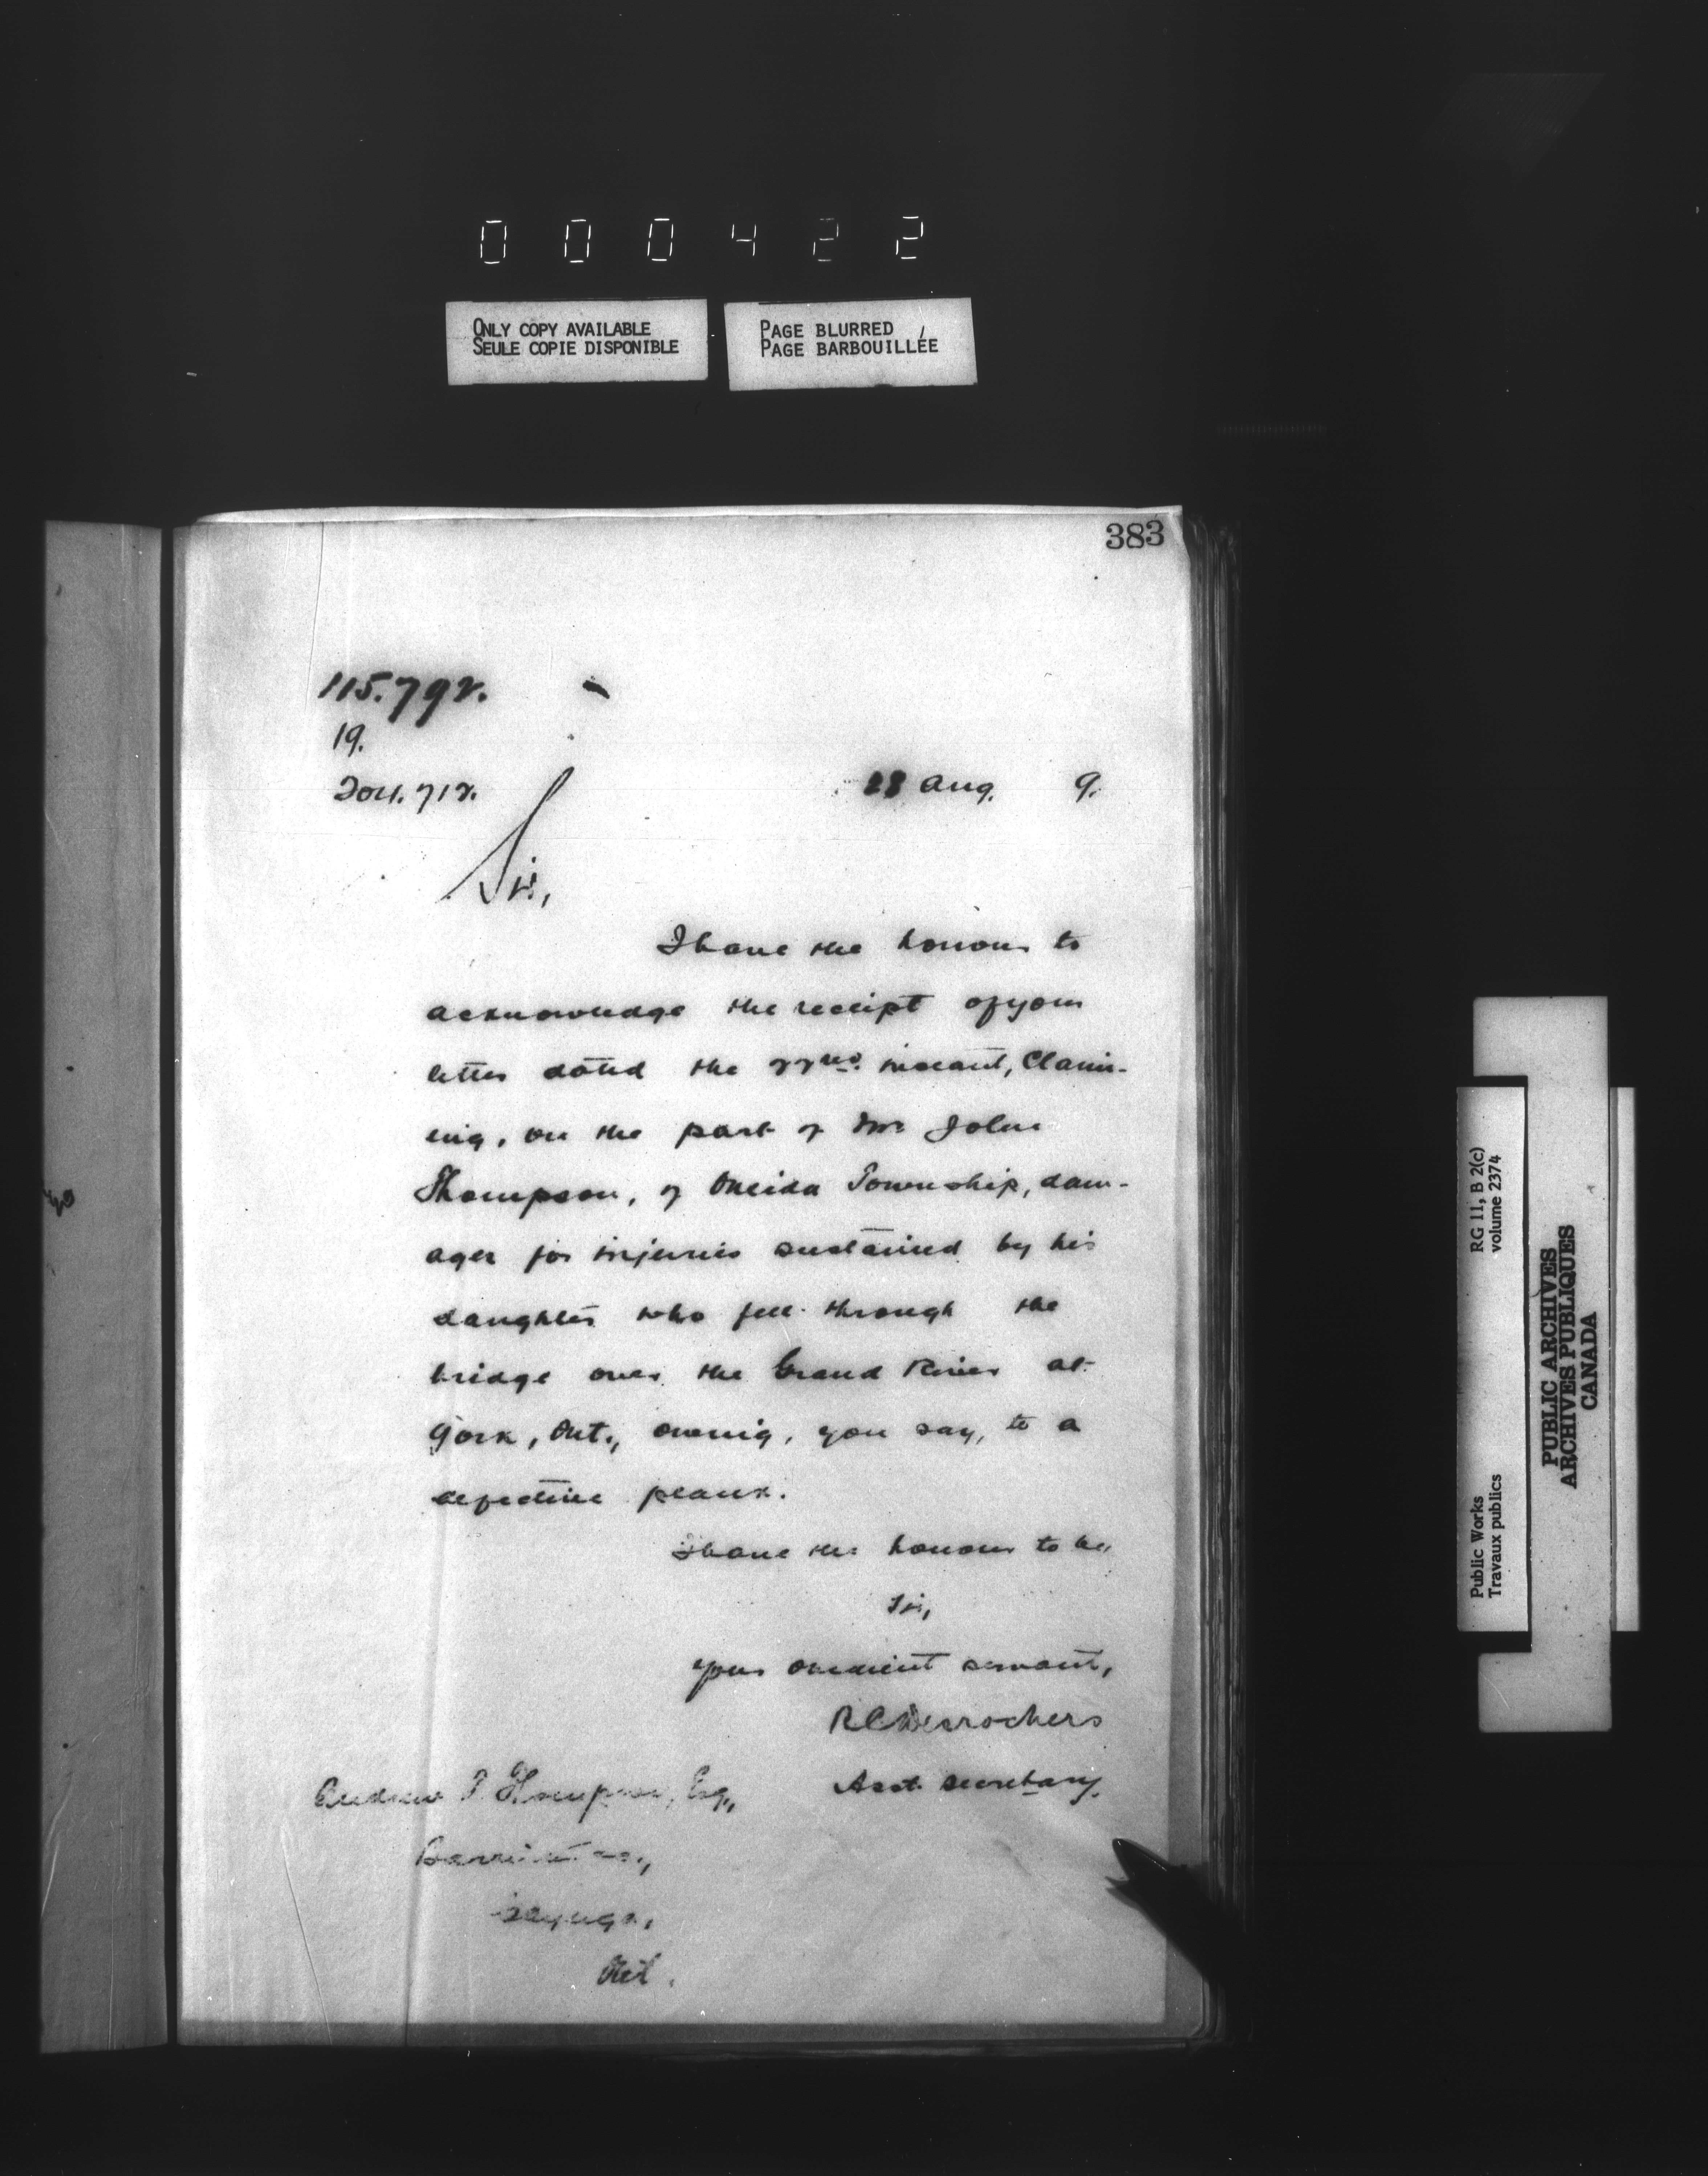 000422
ONLY COPY AVAILABLE
SEULE COPIE DISPONIBLE
PAGE BLURRED
PAGE BARBOUILLÉE
383
115.792.
19.
204.712.
28 Aug. 9.
Sir,
I have the honour to
acknowledge the receipt of your
letter dated the 22nd. instant, Claim-
ing, on the part of Mr John
Thompson, of Oneida Township, dam-
ages for injuries sustained by his
daughter who fell through the
bridge over the Grand River at
York, Ont., owing, you say, to a
defective plank.
I have the honour to be,
Sir,
Your obedient servant,
R C Desrochers
Asst. Secretary.
Andrew T. Thompson, Esq.,
Barrister &c.,
Cayuga,
Ont.
RG 11, B 2(c)
volume 2374
Public Works
Travaux publics
PUBLIC ARCHIVES
ARCHIVES PUBLIQUES
CANADA